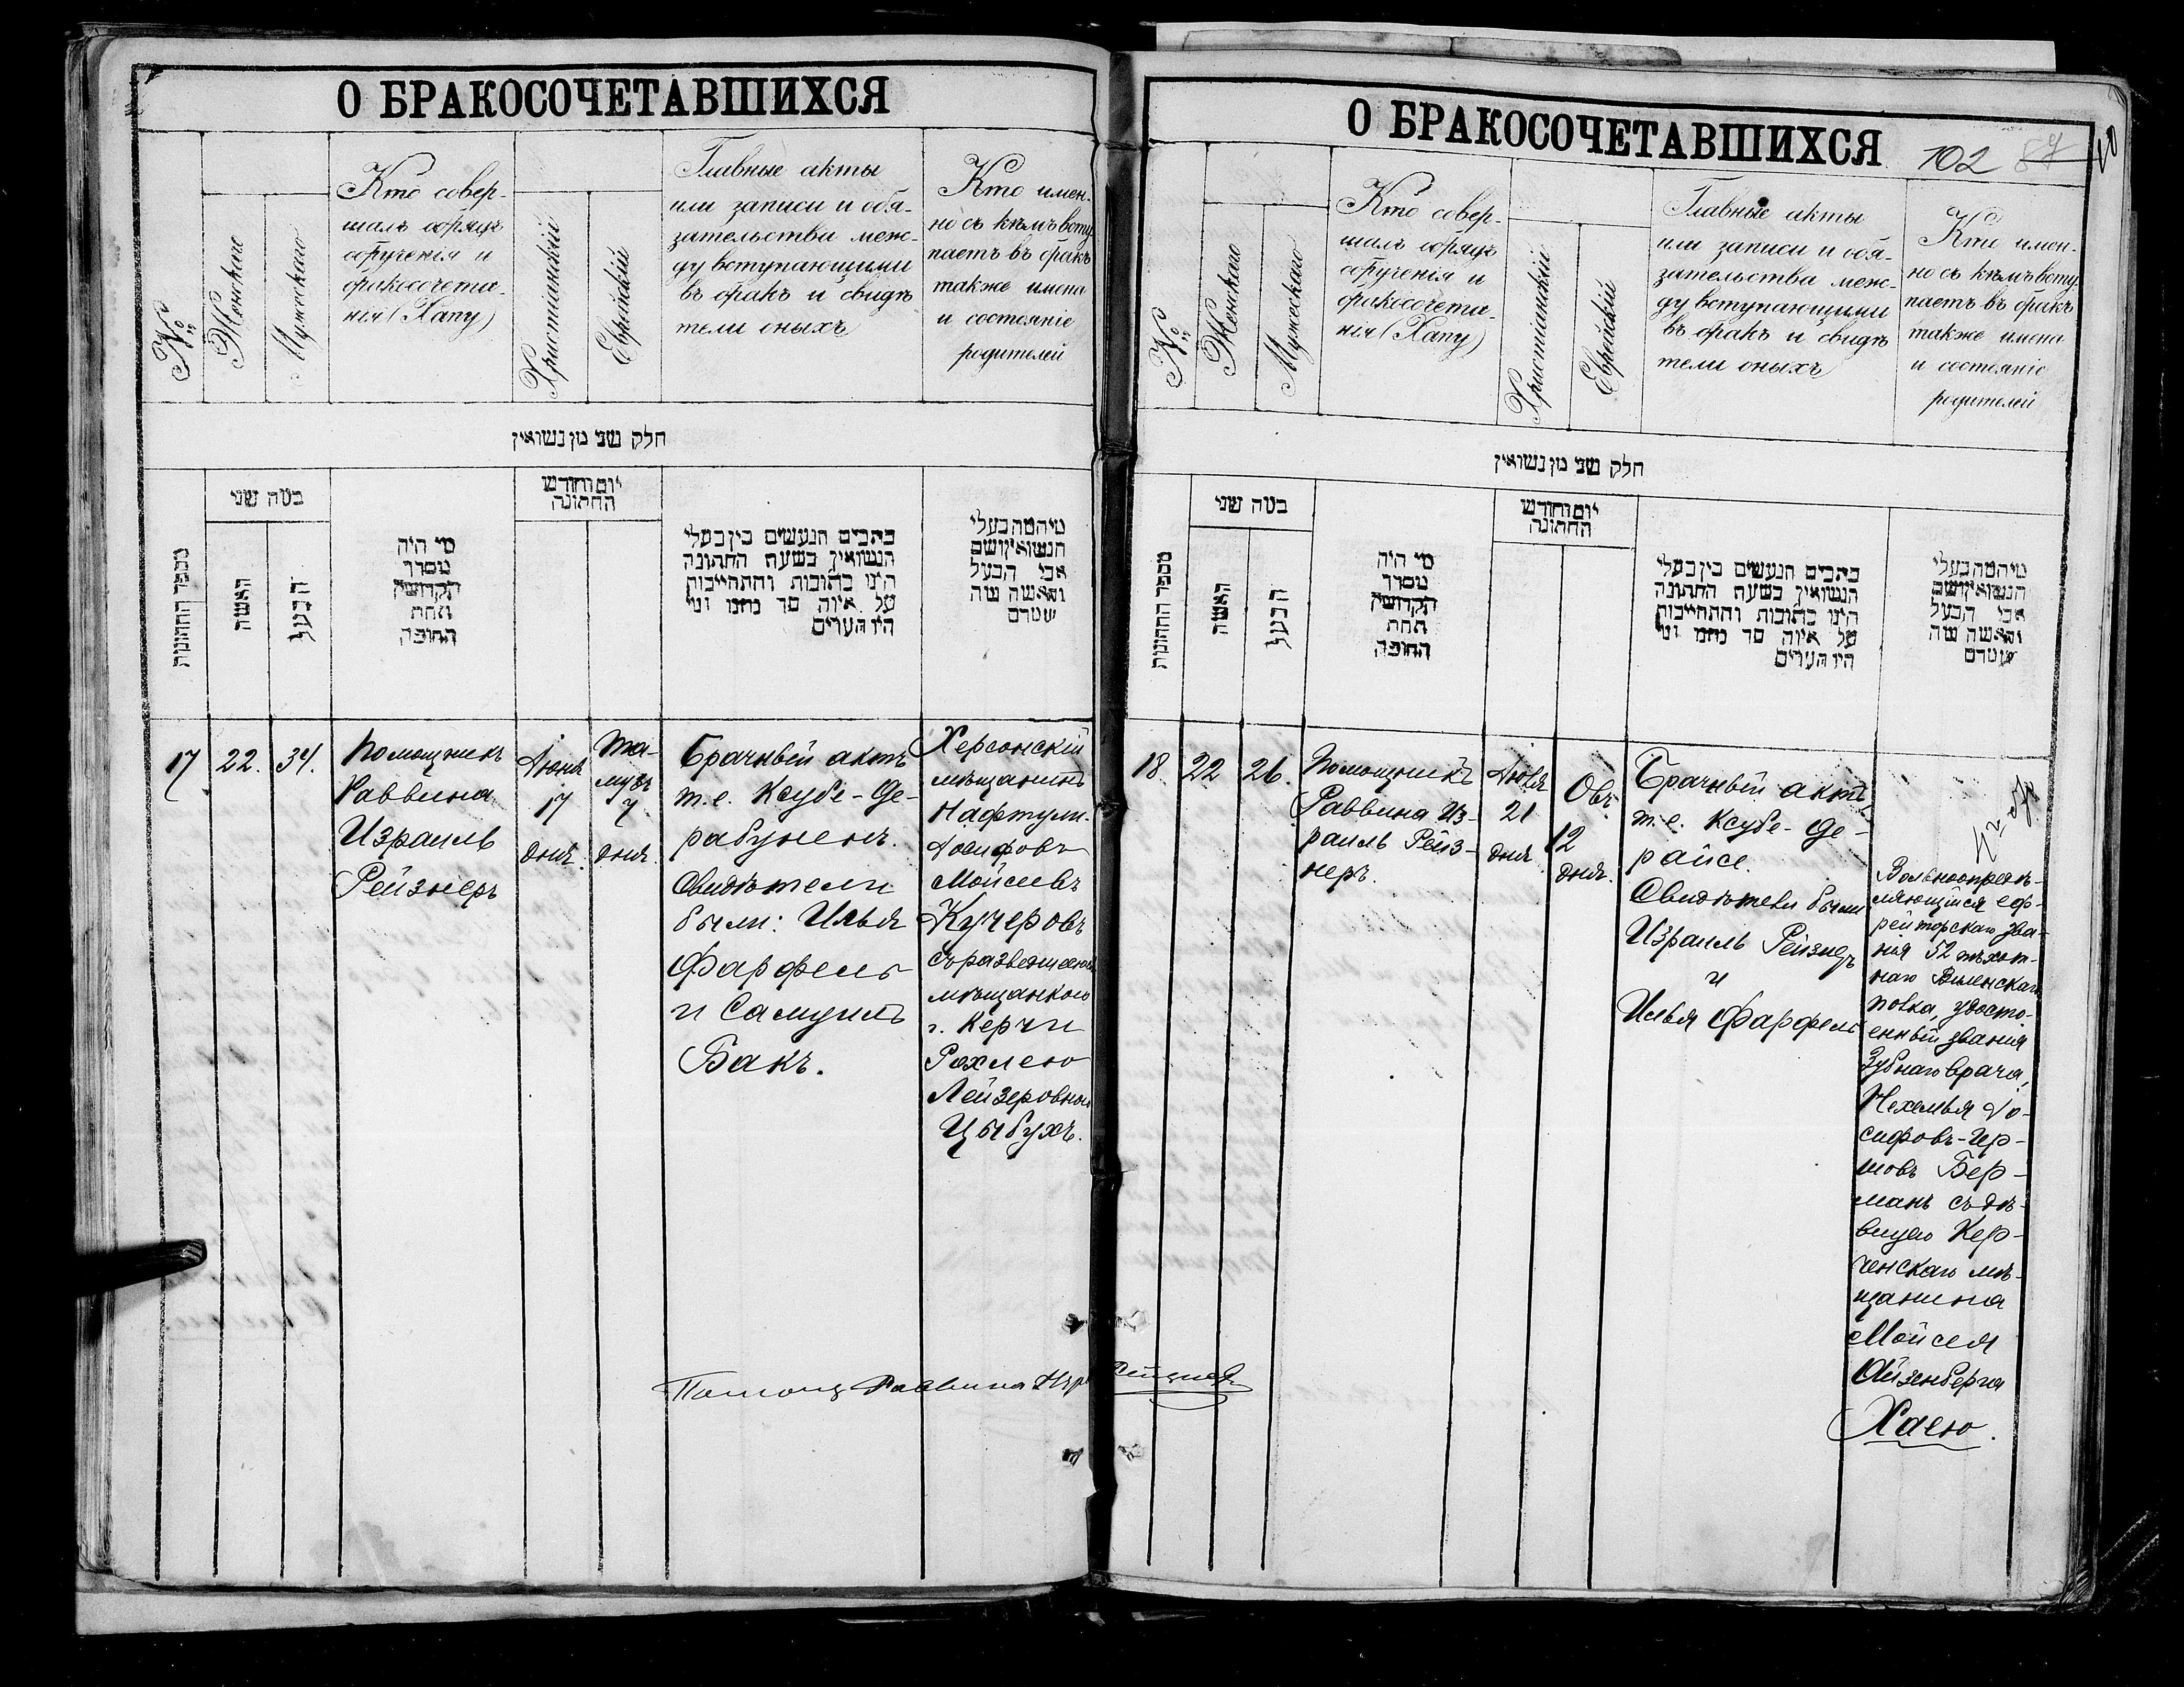 О БРАКОСОЧЕТАВШИХСЯ
№
Женскаго
Мужескаго
Кто совер-
шалъ обрядъ
обрученія и
бракосочета-
нія (Хапу)
Христіанскій
Еврейскій
Главные акты
или записи и обя-
зательства меж-
ду вступающими
въ бракъ и свидѣ
тели оныхъ
Кто имен-
но съ кѣмъ всту
паетъ въ бракъ
также имена
и состояніе
родителей
חלק שני מן נשואין
מספר החתונות
כמה שני
האשה
הבעל
מי היה
מסדר
הקדושין
תחת
החופה
יום וחודש
החתונה
כתבים הנעשים בין בעלי
הנשואין בשעת החתונה
היינו כתובות והתחייבות
על איזה סך
היו העדים
אבי הבעל
17
22.
34.
Помощникъ
Раввина
Израиль
Рейзнеръ
Іюня
17
дня.
Та-
музъ
7
дня.
Брачный актъ
т.е. Ксубе-Де-
рабуненъ.
Свидѣтели
были: Илья
Фарфель
и Самуилъ
Бакъ.
Херсонскій
мѣщанинъ
Нафтули-
Іосифовъ
Мойсеевъ
Кучеровъ
съ разведшеюся
мѣщанкою
г. Керчи
Рахлею
Лейзеровною
Цыбухъ.
Помощ Раввина Изр Рейзнеръ
О БРАКОСОЧЕТАВШИХСЯ
102
87
№
Женскаго
Мужескаго
Кто совер-
шалъ обрядъ
обрученія и
бракосочета-
нія (Хапу)
Христіанскій
Еврейскій
Главные акты
или записи и обя-
зательства меж-
ду вступающими
въ бракъ и свидѣ
тели оныхъ
Кто имен-
но съ кѣмъ всту
паетъ въ бракъ
также имена
и состояніе
родителей
חלק שני מן נשואין
מספר החתונות
כמה שני
האשה
הבעל
מי היה
מסדר
הקדושין
תחת
החופה
יום וחודש
החתונה
כתבים הנעשים בין בעלי
הנשואין בשעת החתונה
היינו כתובות והתחייבות
על איזה סך
היו העדים
אבי הבעל
18.
22
26.
Помощникъ
Раввина Из-
раиль Рейз-
неръ.
Іюля
21
дня
Овъ
12
дня.
Брачный актъ
т.е. Ксубе-Де-
райсе.
Свидѣтели были
Израиль Рейзнеръ
и
Илья Фарфель
Вольноопредѣ-
ляющійся еф-
рейторскаго зва-
нія 52 пѣхот-
наго Виленскаго
полка, удосто-
енный званія
Зубнаго врача,
Нехемья Іо-
сифовъ-Гер-
шовъ Бер-
манъ съ дѣ-
вицею Кер-
ченскаго мѣ-
щанина
Мойсея
Айзенберга
Хаею.